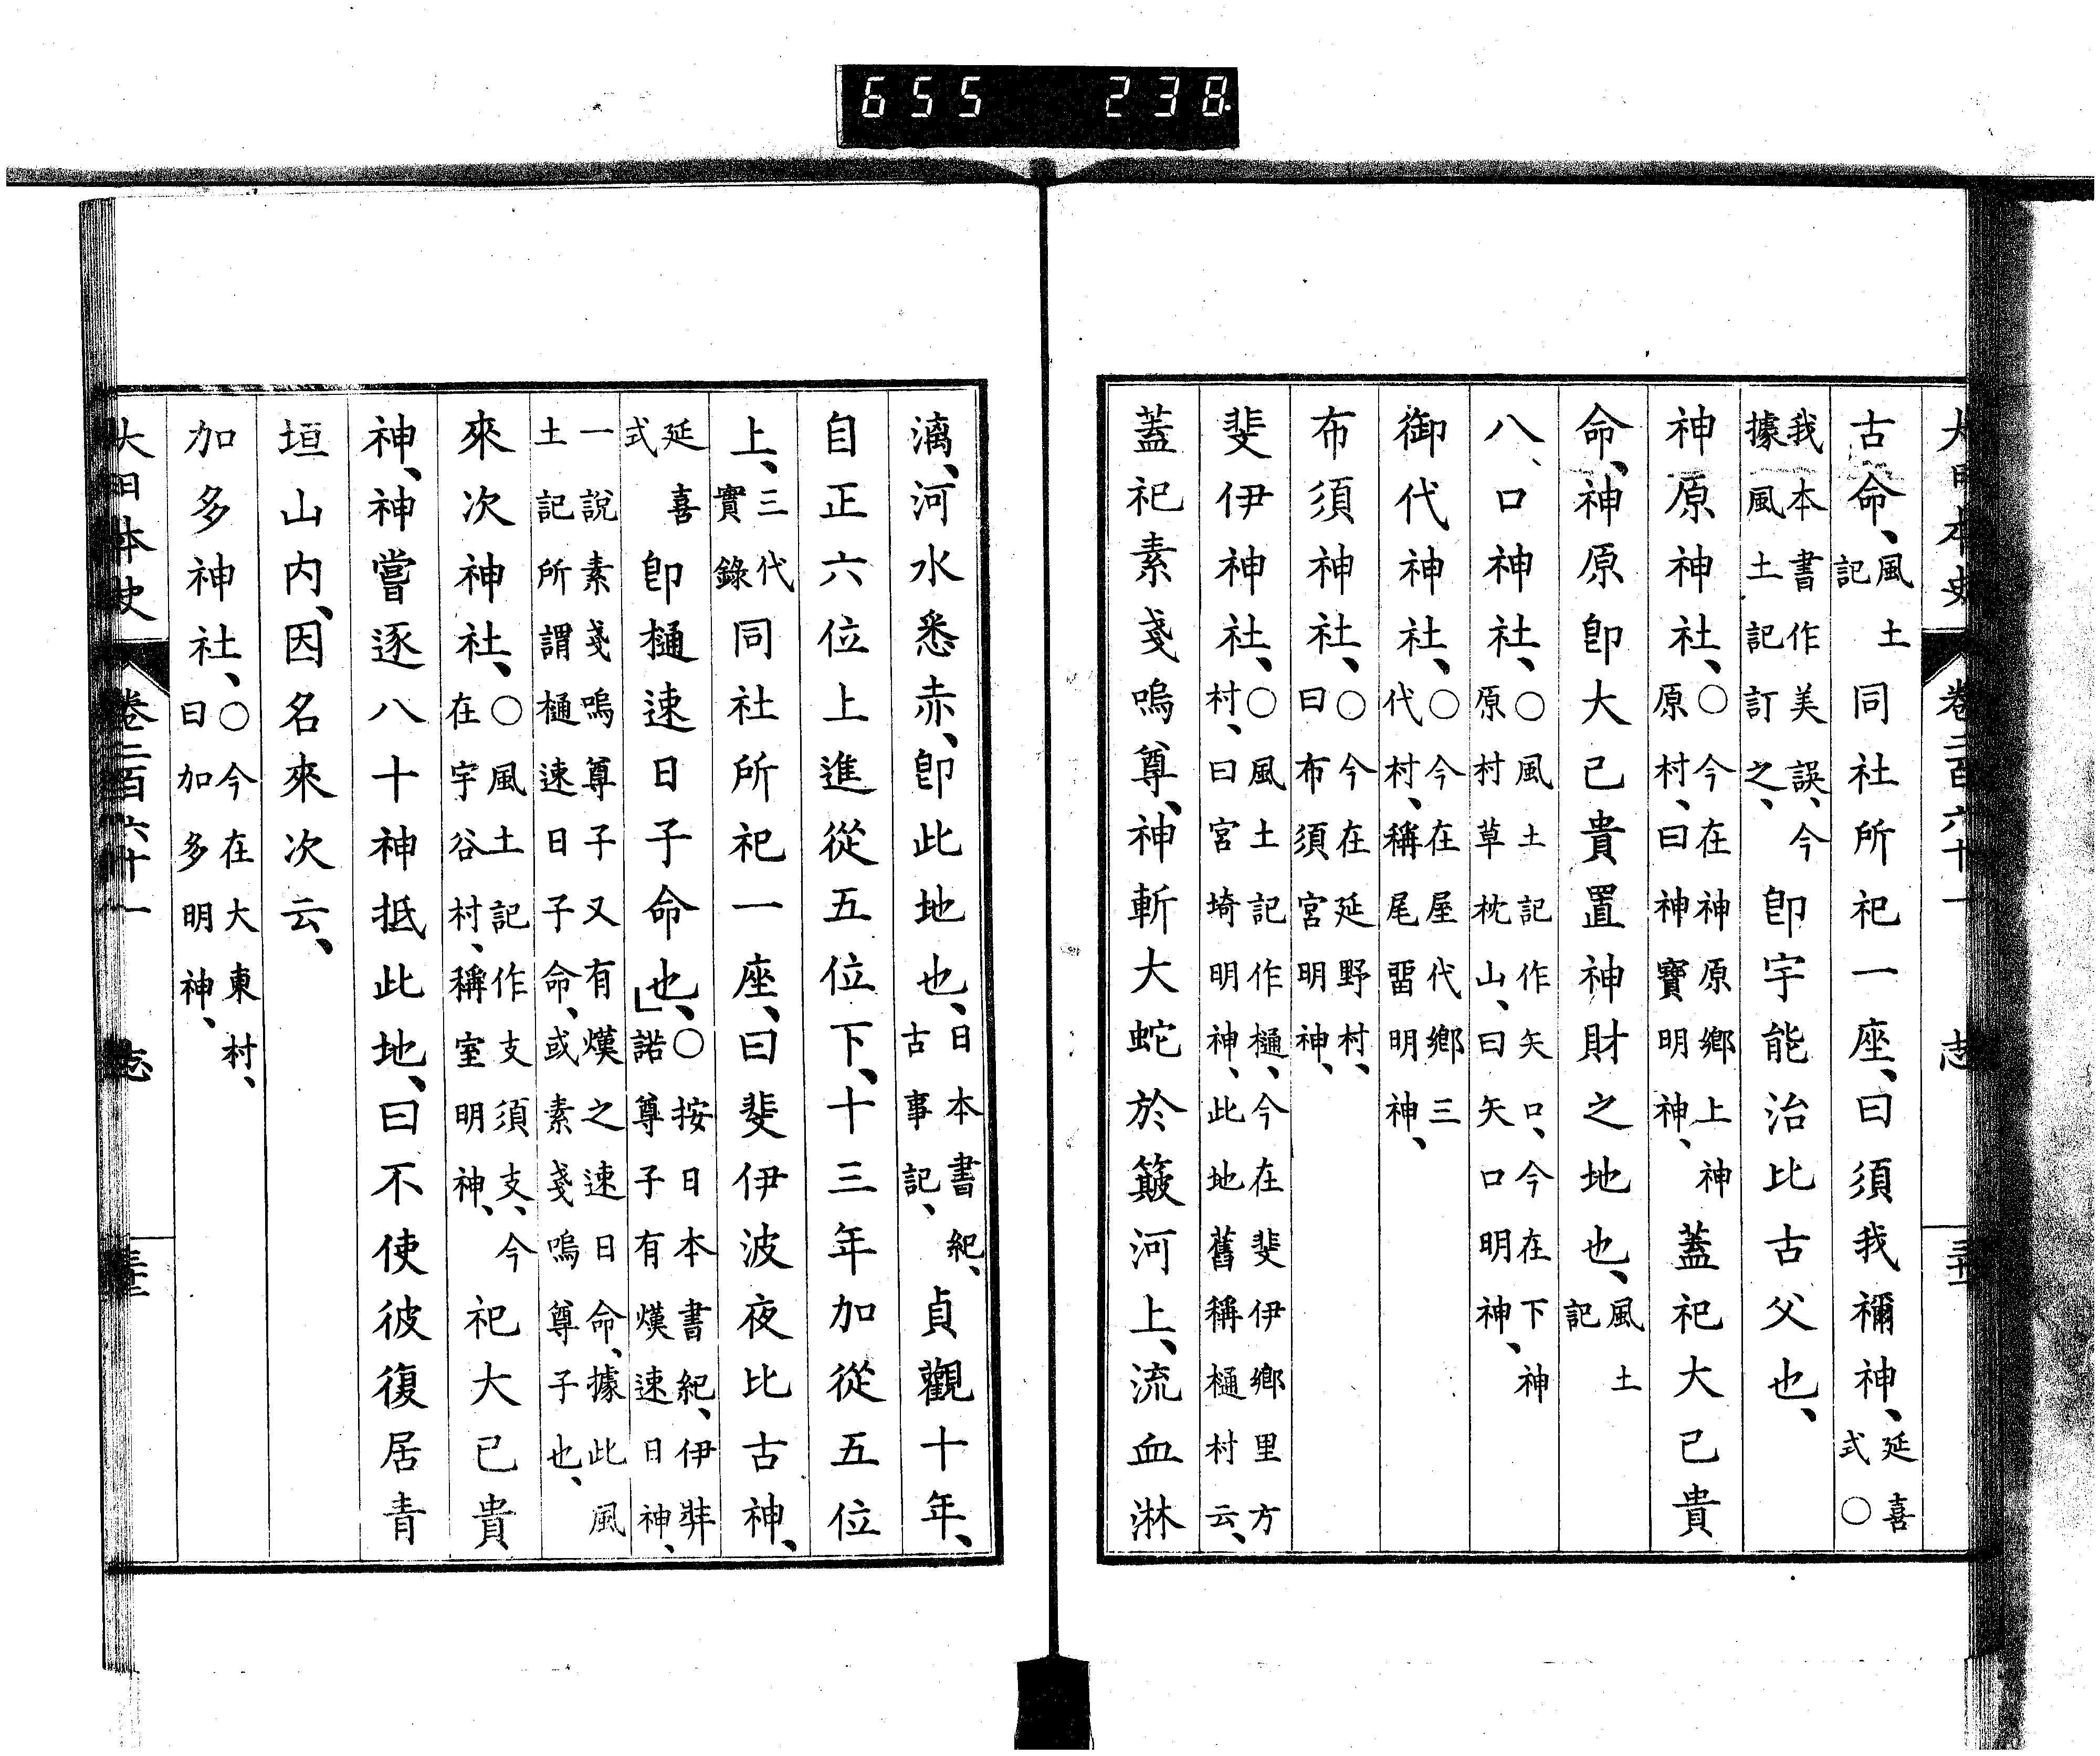 655 238
大日本史 卷二百六十一 志
古命、風土記 同社所祀一座、曰須我禰神、延喜式○
我本書作美誤、今據風土記訂之、 卽宇能治比古父也、
神原神社、○今在神原鄉上神原村、曰神原神寶明神、 蓋祀大己貴
命、神原卽大己貴置神財之地也、風土記
八口神社、○風土記作矢口、今在下神原村草枕山、曰矢口明神、
御代神社、○今在屋代鄉三代村、稱尾畱明神、
布須神社、○今在延野村、曰布須宮明神、
斐伊神社、○風土記作樋、今在斐伊鄉里方村、曰宮埼明神、此地舊稱樋村云、
蓋祀素戔嗚尊、神斬大蛇於簸河上、流血淋
漓、河水悉赤、卽此地也、日本書紀、古事記、 貞觀十年、
自正六位上進從五位下、十三年加從五位
上、三代實錄 同社所祀一座、曰斐伊波夜比古神、
延喜式 卽樋速日子命也、○按日本書紀、伊弉諾尊子有熯速日神、
一說素戔嗚尊子又有熯之速日命、據此風土記所謂樋速日子命、或素戔嗚尊子也、
來次神社、○風土記作支須支、今在宇谷村、稱室明神、 祀大己貴
神、神嘗逐八十神抵此地、曰不使彼復居青
垣山內、因名來次云、
加多神社、○今在大東村、曰加多明神、
大日本史 卷二百六十一 志